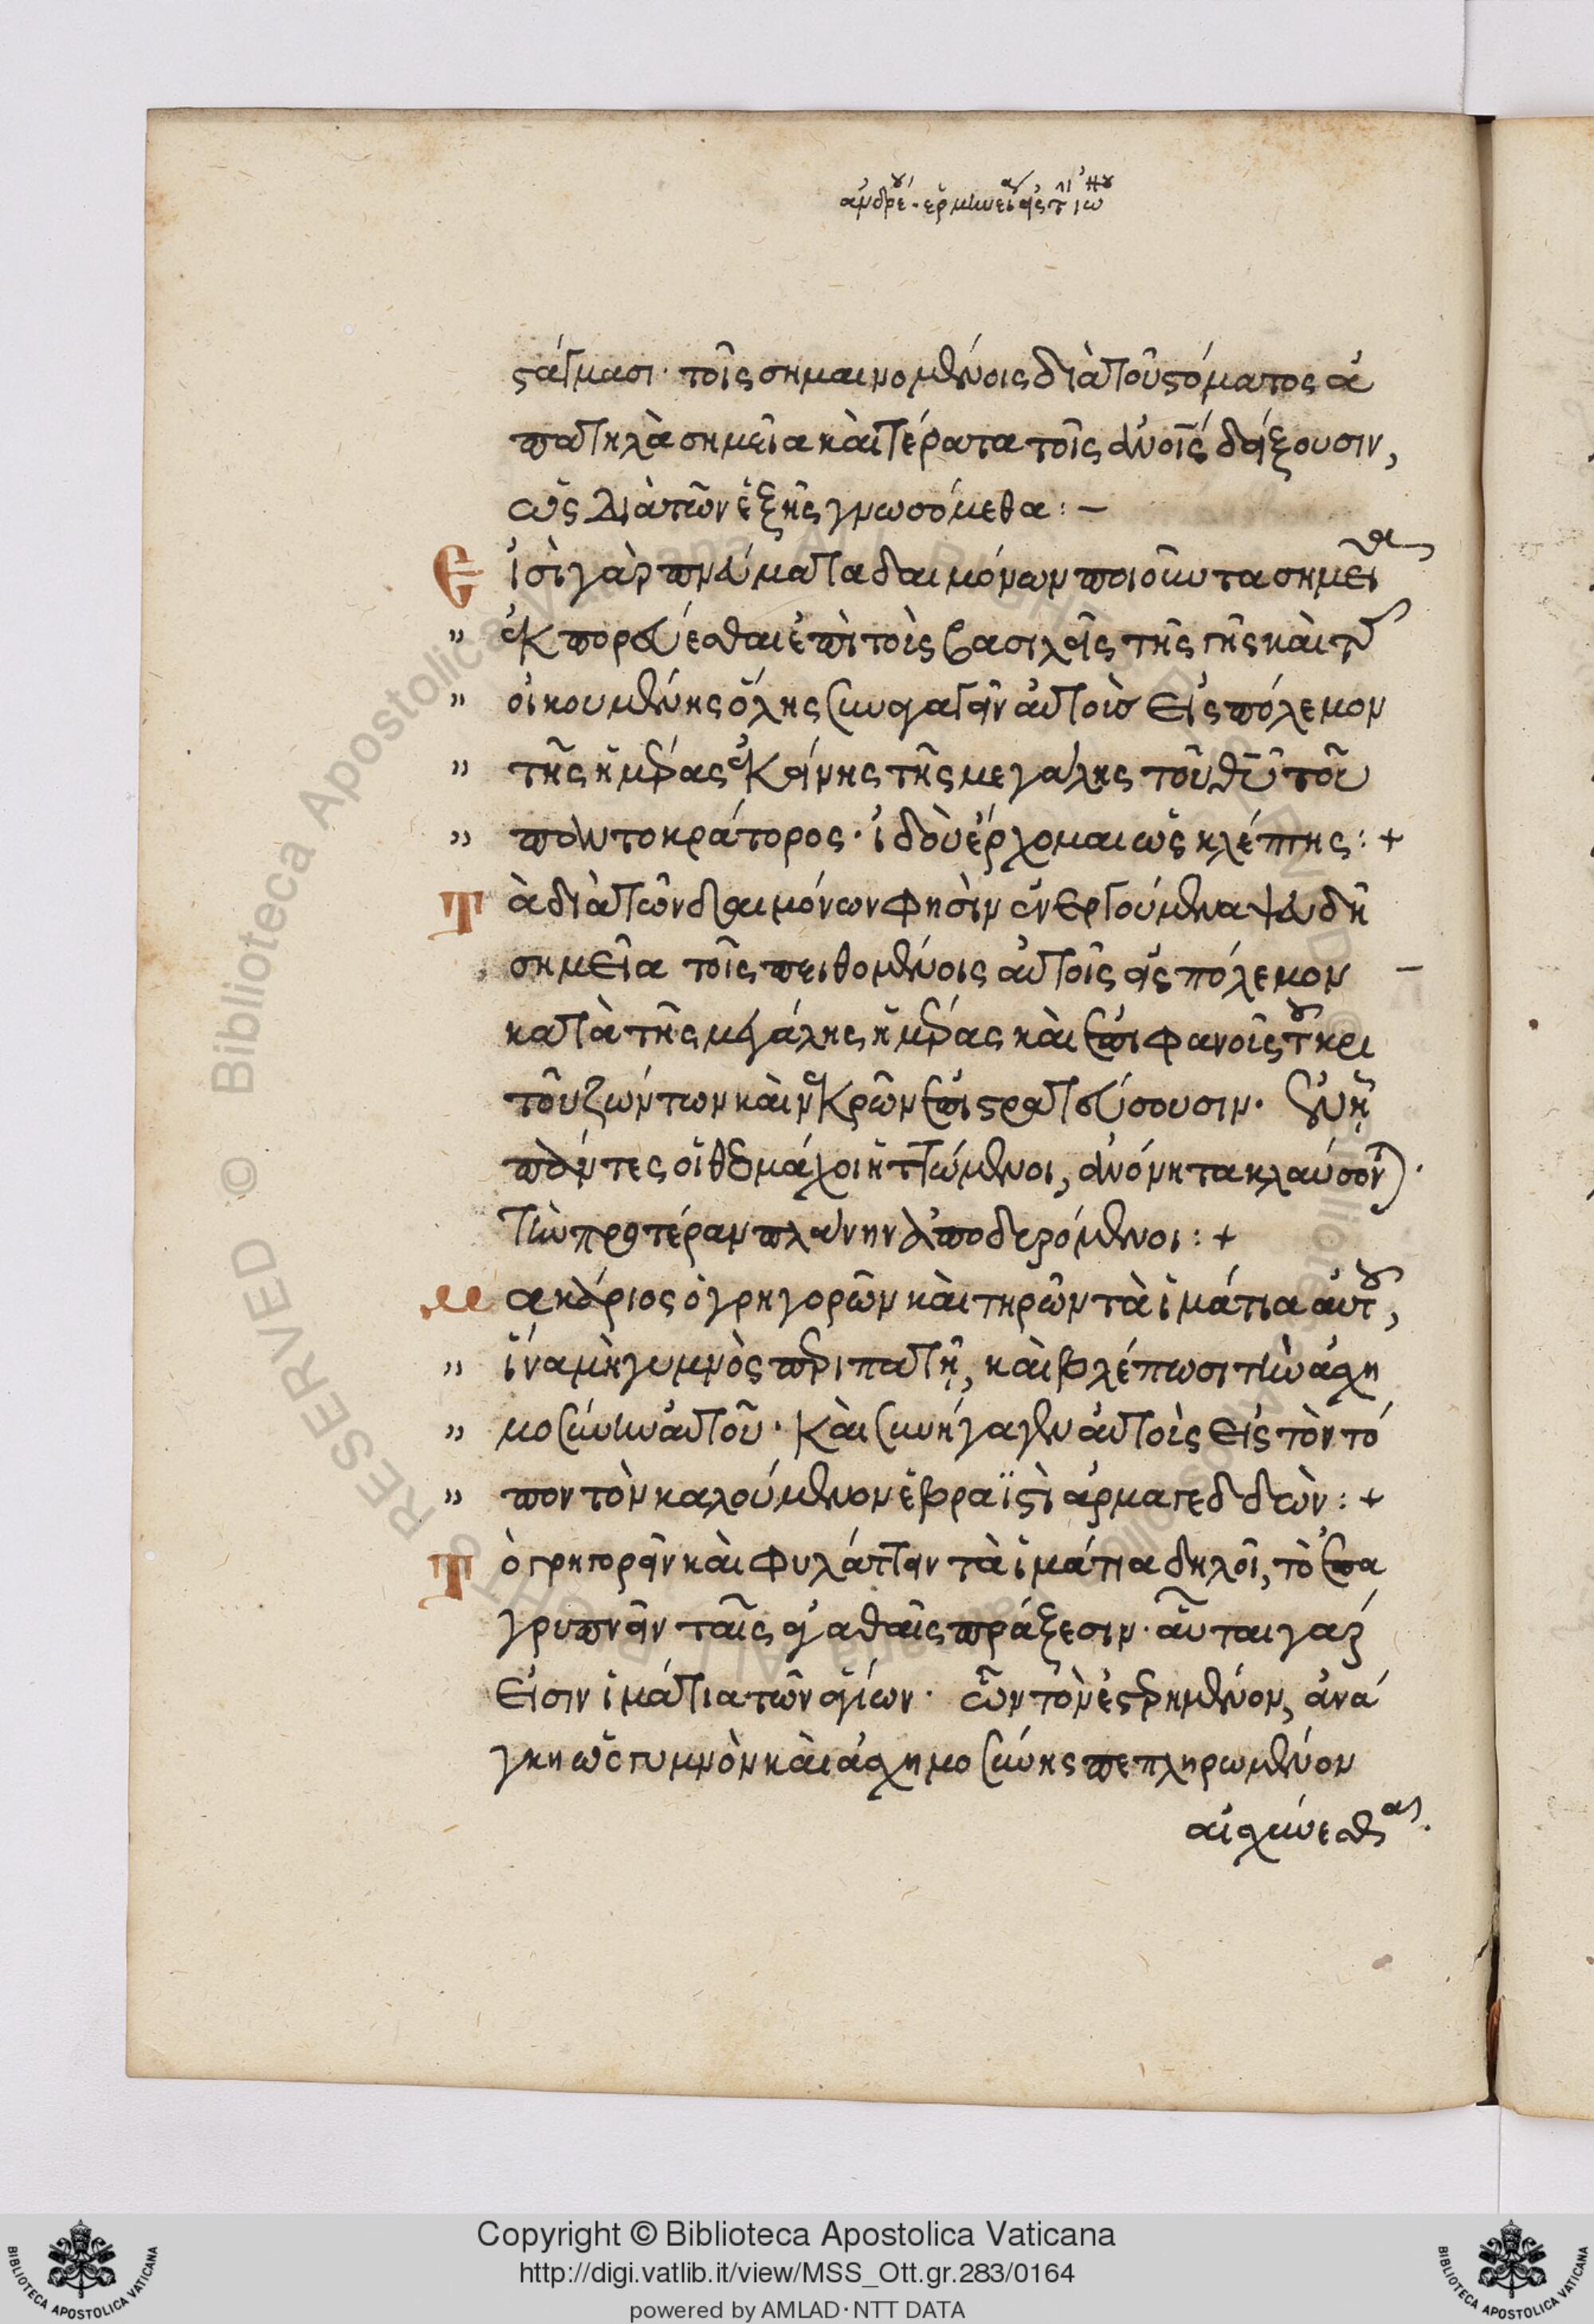 ἀνδρέου ἑρμηνεία εἰς τὴν
στάγμασι· τοῖς σημαινομένοις διὰ τοῦ στόματος ἀ
πατηλὰ σημεῖα καὶ τέρατα τοῖς ἀνοις δείξουσιν,
ὡς διὰ τῶν ἑξῆς γνωσόμεθα:–
Εἰσὶ γὰρ πνεύματα δαιμόνων ποιοῦντα σημεῖα
" ἐκπορεύεσθαι ἐπὶ τοὺς βασιλεῖς τῆς γῆς καὶ τῆς
" οἰκουμένης ὅλης συναγαγεῖν αὐτοὺς εἰς πόλεμον
" τῆς ἡμέρας ἐκείνης τῆς μεγάλης τοῦ θῦ τοῦ
" παντοκράτορος· ἰδοὺ ἔρχομαι ὡς κλέπτης:+
Τὰ διὰ τῶν δαιμόνων φησὶν ἐνεργούμενα ψευδῆ
σημεῖα τοῖς πειθομένοις αὐτοῖς εἰς πόλεμον
κατὰ τῆς μεγάλης ἡμέρας καὶ ἐπιφανοῦς τοῦ κρι
τοῦ ζώντων καὶ νεκρῶν ἐπιστρατεύσουσιν· ἐν ᾗ
πάντες οἱ θεομάχοι ἡττώμενοι, ἀνόνητα κλαύσονται·
τὴν προτέραν πλάνην ἀποδυρόμενοι:+
Μακάριος ὁ γρηγορῶν καὶ τηρῶν τὰ ἱμάτια αὐτοῦ,
" ἵνα μὴ γυμνὸς περιπατῇ, καὶ βλέπωσι τὴν ἀσχη
" μοσύνην αὐτοῦ· Καὶ συνήγαγεν αὐτοὺς εἰς τὸν τό
" πον τὸν καλούμενον ἑβραϊστὶ ἁρμαγεδδών:+
Τὸ γρηγορεῖν καὶ φυλάττειν τὰ ἱμάτια δηλοῖ, τὸ ἐπα
γρυπνεῖν ταῖς ἀγαθαῖς πράξεσιν· αὗται γὰρ
εἰσιν ἱμάτια τῶν ἁγίων· ὧν τὸν ἐστερημένον, ἀνά
γκη ὡς γυμνὸν καὶ ἀσχημοσύνης πεπληρωμένον
αἰσχύνεσθαι.
Copyright © Biblioteca Apostolica Vaticana
http://digi.vatlib.it/view/MSS_Ott.gr.283/0164
powered by AMLAD·NTT DATA